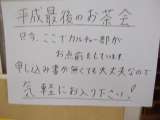 平成最後のお茶会
只今、ここでカルチャー部が
お点前をしています
申し込み書が無くても大丈夫なので
気軽にお入り下さい!